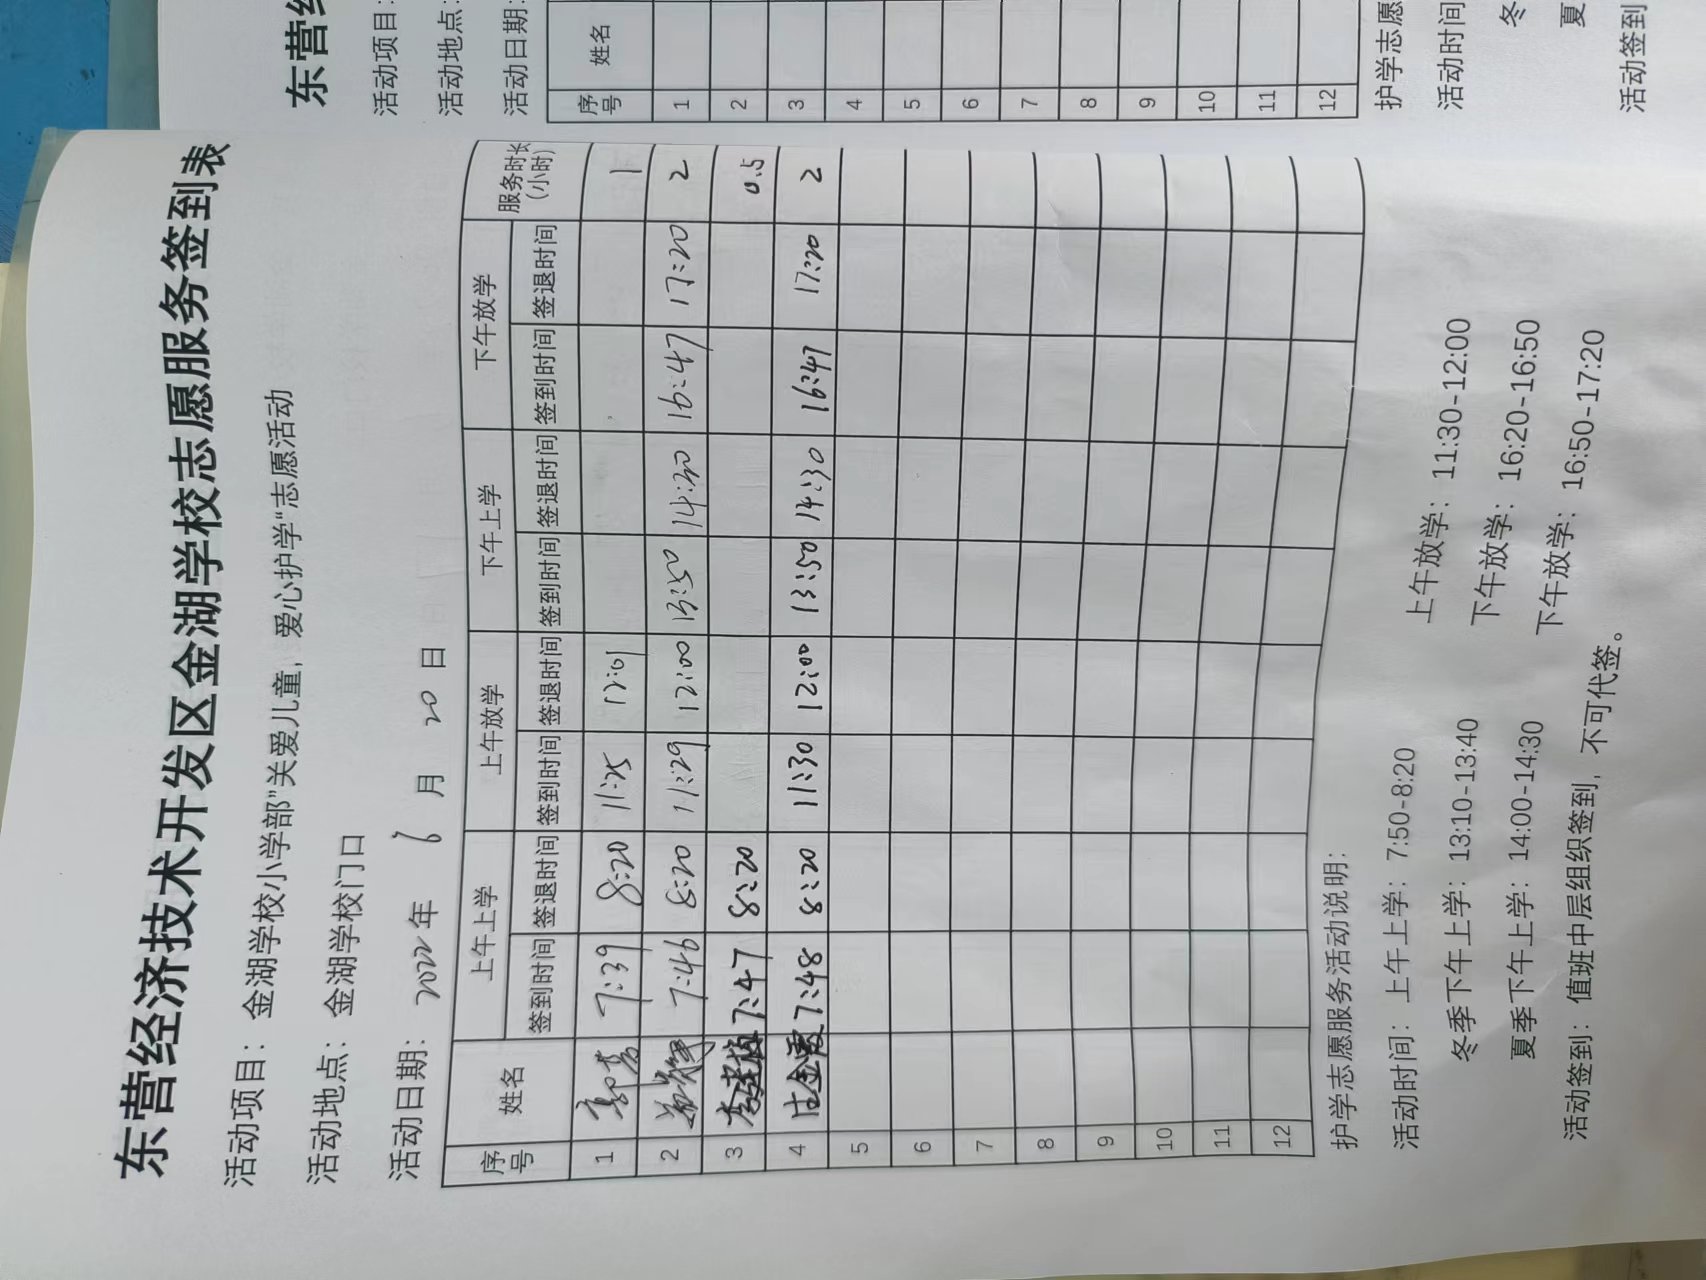 东营经济技术开发区金湖学校志愿服务签到表
活动项目：金湖学校小学部"关爱儿童，爱心护学"志愿活动
活动地点：金湖学校门口
活动日期：2022年 6 月 20 日
序号 姓名 上午上学 上午放学 下午上学 下午放学 服务时长（小时）
签到时间 签退时间 签到时间 签退时间 签到时间 签退时间 签到时间 签退时间
1 7:39 8:20 11:25 12:01 1
2 7:46 8:20 11:29 12:00 13:50 14:30 16:47 17:20 2
3 7:47 8:20 0.5
4 7:48 8:20 11:30 12:00 13:50 14:30 16:47 17:20 2
5
6
7
8
9
10
11
12
护学志愿服务活动说明：
活动时间：上午上学：7:50-8:20 上午放学：11:30-12:00
冬季下午上学：13:10-13:40 下午放学：16:20-16:50
夏季下午上学：14:00-14:30 下午放学：16:50-17:20
活动签到：值班中层组织签到，不可代签。
东营
活动项目：
活动地点：
活动日期：
序号 姓名
1
2
3
4
5
6
7
8
9
10
11
12
护学志愿
活动时间
冬
夏
活动签到